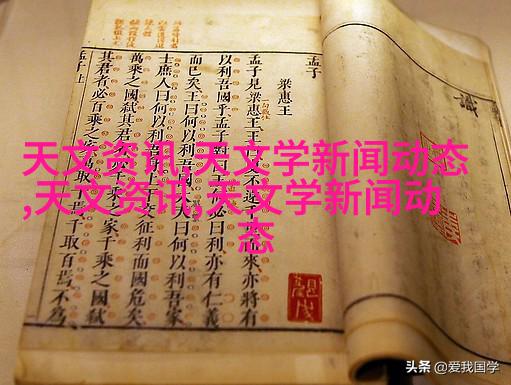 天文资讯,天文学新闻动态
,天文资讯,天文学新闻动
态
識
孟子
梁惠王
孟子見梁惠王王 不遠 而來亦將有
以利吾國乎孟子對曰王 必曰利亦有仁義
而已矣王曰何以利吾 大夫曰何以利吾家
士庶人曰何以利吾 交征利而國危矣
萬乘之國弒其君 千乘之家千乘之國弒
其君者必百乘之家萬取千焉千取百焉不為
孟子上
头条 @爱我国学